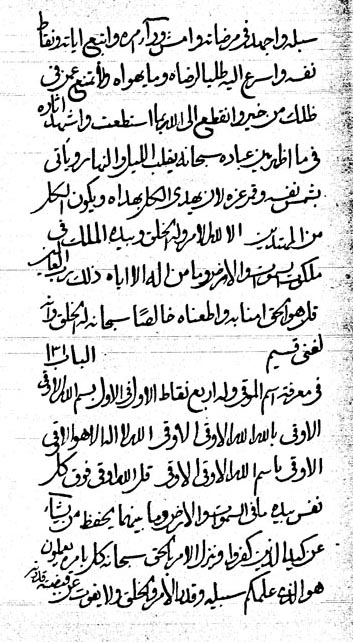 سبله واجهد فى مرضاته وامش ورآء امره واتبع اياته ونقاط
نفسه واسرع اليه طلبا لرضاه وما يهواه ولا تمتنع عن فى
ظلك من خير وانقطع الى الله ما استطعت واشهد اثاره
فى ما اظهر بين عباده سبحانه يقلب الليل والنهار وياتى
بشمس نفسه وقمر عزه لان يهدى الكل بهداه ويكون الكل
من المهتدين الا لله الامر والخلق وبيده الملك فى
ملكوت السموات والارض وما من اله الا اياه ذلك رب العالمين
قل هو الحق امنا به واطعناه خالصا سبحانه له الخلق وانه
لغنى قسيم الباب ١٣١
فى معرفة اسم الموقى وله اربع نقاط الاول فى الاول بسم الله الاوقى
الاوقى بالله الله الاوقى الاوقى الله لا اله الا هو الاوقى
الاوقى باسم الله الاوقى الاوقى قل الله اوقى فوق كل
نفس بيده ما فى السموات والارض وما بينهما يحفظ من يشاء
عن كيد الذين كفروا وينزل الامر بالحق سبحانه كل بامره يعملون
هو الذى علمكم سبله وقدر الامر والخلق ولا يفوت عن قبضته قدر